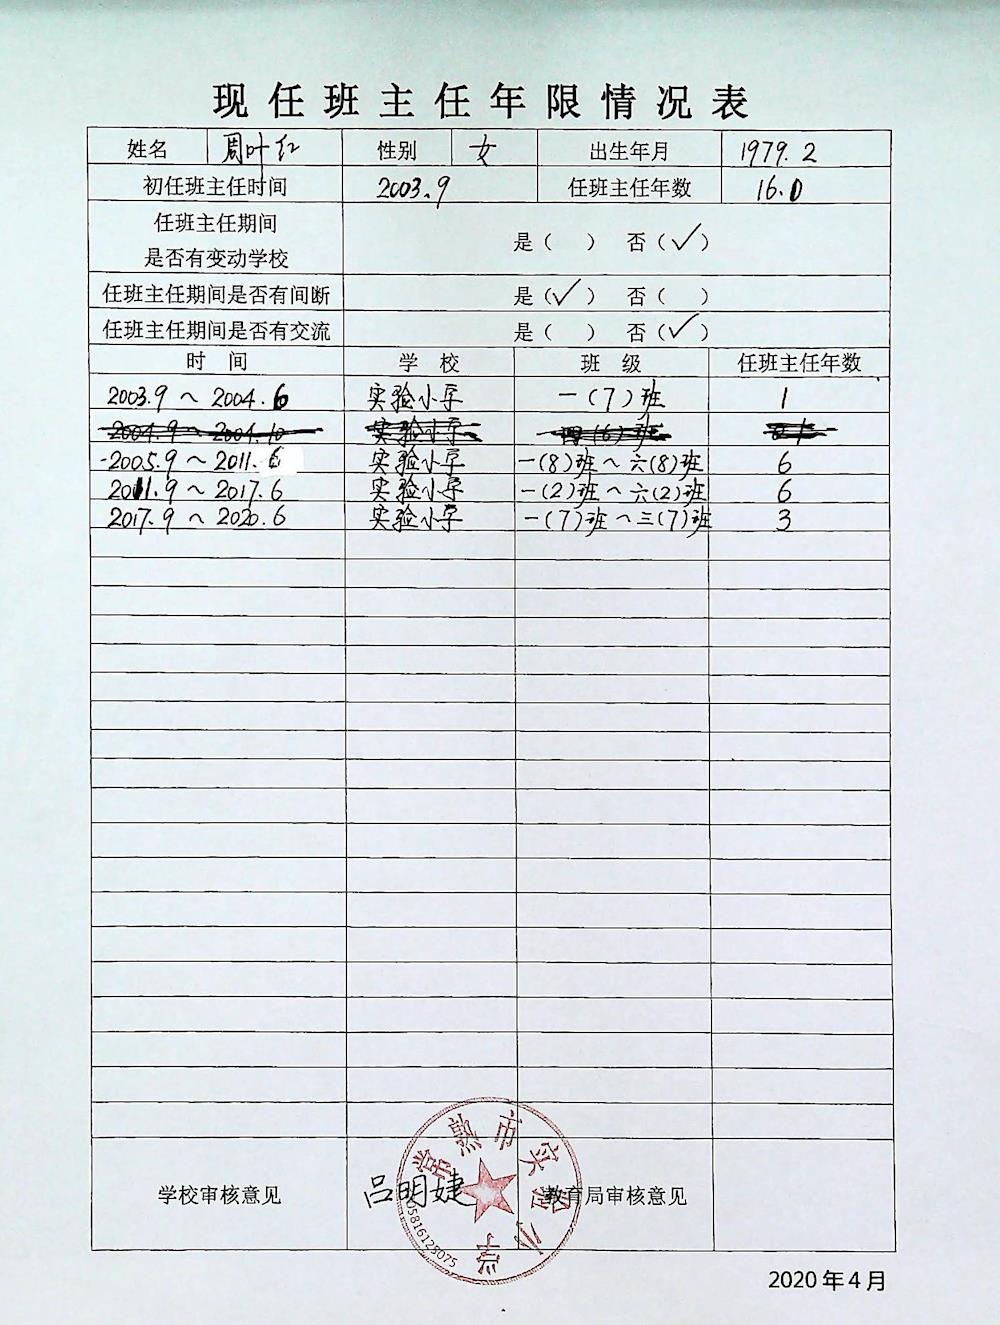 现任班主任年限情况表
姓名 周叶红 性别 女 出生年月 1979.2
初任班主任时间 2003.9 任班主任年数 16.0
任班主任期间
是否有变动学校 是（ ） 否（✓）
任班主任期间是否有间断 是（✓） 否（ ）
任班主任期间是否有交流 是（ ） 否（✓）
时 间 学 校 班 级 任班主任年数
2003.9 ~ 2004.6 实验小学 一(7)班 1
2004.9 ~ 2004.10 实验小学
2005.9 ~ 2011.6 实验小学 一(8)班~六(8)班 6
2011.9 ~ 2017.6 实验小学 一(2)班~六(2)班 6
2017.9 ~ 2020.6 实验小学 一(7)班~三(7)班 3
常熟市实验小学
学校审核意见 吕明婕 教育局审核意见
05816125075
2020年4月